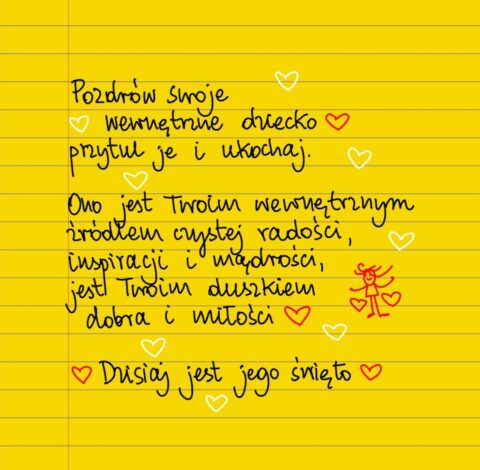 Pozdrów swoje
wewnętrzne dziecko
przytul je i ukochaj.
Ono jest Twoim wewnętrznym
źródłem czystej radości,
inspiracji i mądrości,
jest Twoim duszkiem
dobra i miłości
Dzisiaj jest jego święto